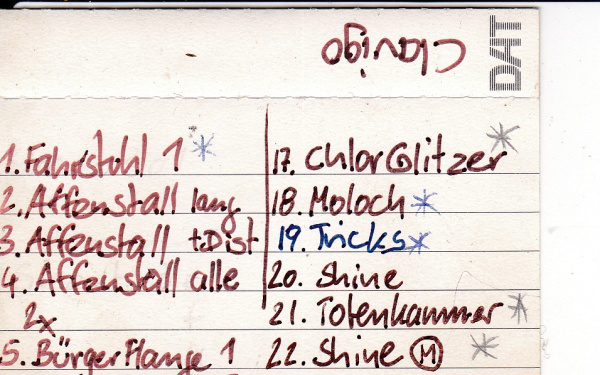 Clavigo
DAT
1. Fahrstuhl 1 *
2. Affenstall lang
3. Affenstall +Dist
4. Affenstall alle
2x
5. Bürger Flange 1
17. ChlorGlitzer *
18. Moloch *
19. Tricks *
20. Shine
21. Totenkammer *
22. Shine Ⓜ *